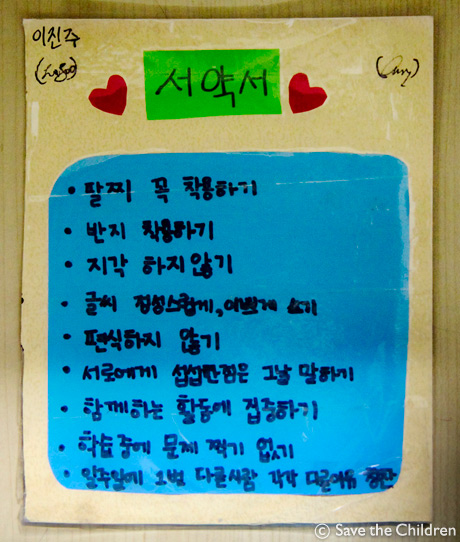 이진주
서약서
• 팔찌 꼭 착용하기
• 반지 착용하기
• 지각 하지않기
• 글씨 정성스럽게, 이쁘게 쓰기
• 편식하지 않기
• 서로에게 섭섭한점은 그날 말하기
• 함께하는 활동에 집중하기
• 학습중에 문제 찍기 없기
• 일주일에 1번 다른사람 각각 다른이유 칭찬
© Save the Children